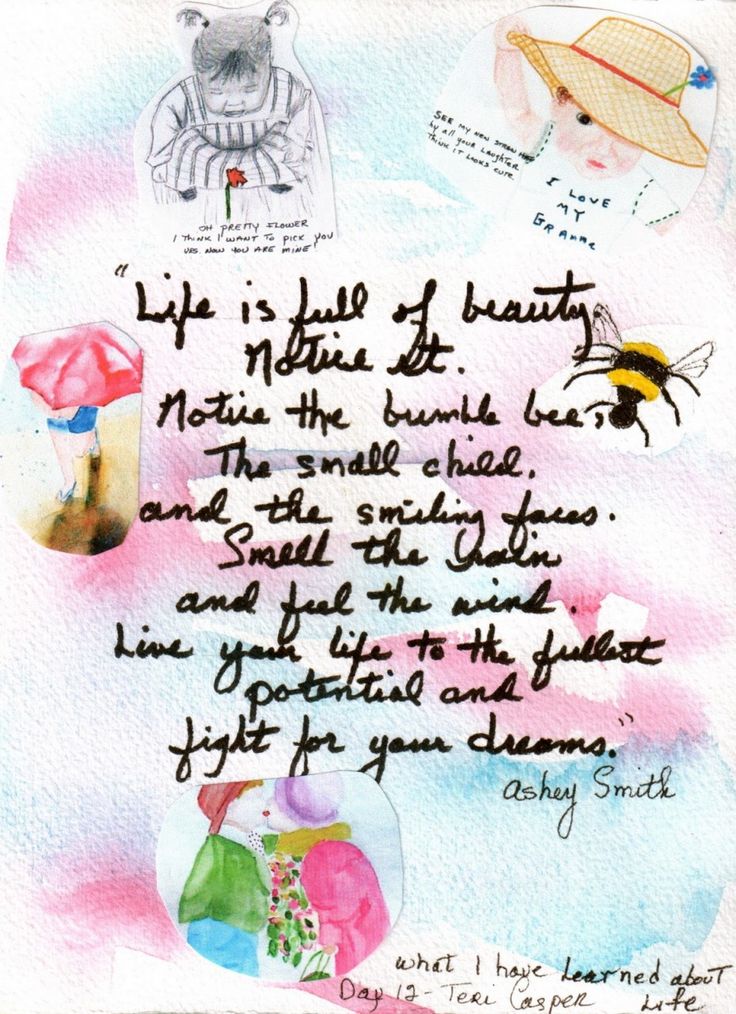 OH PRETTY FLOWER
I THINK I WANT TO PICK YOU
YES. NOW YOU ARE MINE!
SEE MY NEW STRAW HAT
by all your LAUGHTER
THINK IT LOOKS CUTE
I LOVE
MY
GRAMME
"Life is full of beauty
Notice it.
Notice the bumble bee,
The small child,
and the smiling faces.
Smell the rain
and feel the wind.
Live your life to the fullest
potential and
fight for your dreams."
Ashey Smith
What I have Learned about
Life
Day 12 - Teri Casper